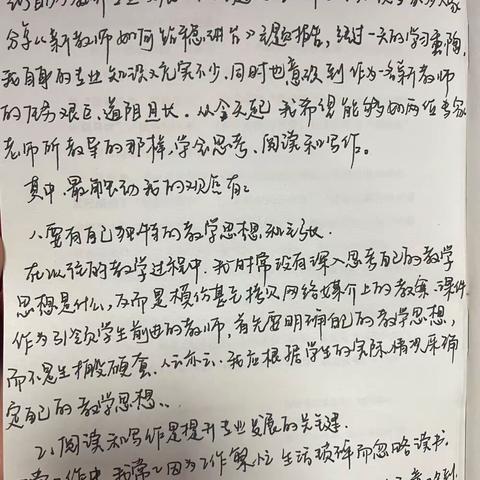 分享《新教师如何站稳讲台》主题报告,经过一天的学习熏陶,
我自身的专业知识又充实不少,同时也意识到作为一名新教师
的任务艰巨、道阻且长。从今天起 我希望能够如两位专家
老师所教导的那样,学会思考、阅读和写作。
其中,最触动我的观点有:
1、要有自己独特的教学思想和主张.
在以往的教学过程中,我时常没有深入思考自己的教学
思想是什么,反而是模仿甚至拷贝网络媒介上的教案、课件
作为引领学生前进的教师,首先要明确自己的教学思想,
而不是生搬硬套、人云亦云.我应根据学生的实际情况来确
定自己的教学思想.
2、阅读和写作是提升专业发展的关键.
工作中,我常常因为工作繁忙 生活琐碎而忽略读书.